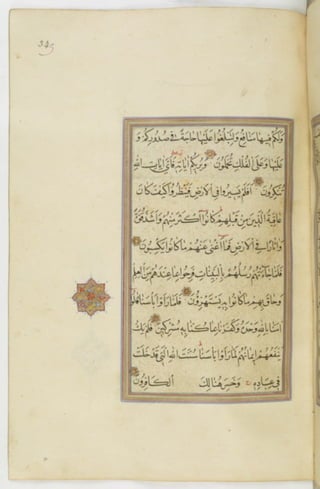 وَلَكُمْ فِيهَا مَنَافِعُ وَلِتَبْلُغُوا عَلَيْهَا حَاجَةً فِي صُدُورِكُمْ وَ
عَلَيْهَا وَعَلَى الْفُلْكِ تُحْمَلُونَ وَيُرِيكُمْ آيَاتِهِ فَأَيَّ آيَاتِ اللهِ
تُنْكِرُونَ اَفَلَمْ يَسِيرُوا فِي الْاَرْضِ فَيَنْظُرُوا كَيْفَ كَانَ
عَاقِبَةُ الَّذِينَ مِنْ قَبْلِهِمْ كَانُوا اَكْثَرَ مِنْهُمْ وَاَشَدَّ قُوَّةً
وَاٰثَارًا فِي الْاَرْضِ فَمَا اَغْنٰى عَنْهُمْ مَا كَانُوا يَكْسِبُونَ
فَلَمَّا جَاءَتْهُمْ رُسُلُهُمْ بِالْبَيِّنَاتِ فَرِحُوا بِمَا عِنْدَهُمْ مِنَ الْعِلْمِ
وَحَاقَ بِهِمْ مَا كَانُوا بِهِ يَسْتَهْزِؤُنَ فَلَمَّا رَاَوْا بَاْسَنَا قَالُوا
اٰمَنَّا بِاللهِ وَحْدَهُ وَكَفَرْنَا بِمَا كُنَّا بِهِ مُشْرِكِينَ فَلَمْ يَكُ
يَنْفَعُهُمْ اِيمَانُهُمْ لَمَّا رَاَوْا بَاْسَنَا سُنَّتَ اللهِ الَّتِي قَدْ خَلَتْ
فِي عِبَادِهِ وَخَسِرَ هُنَالِكَ الْكَافِرُونَ